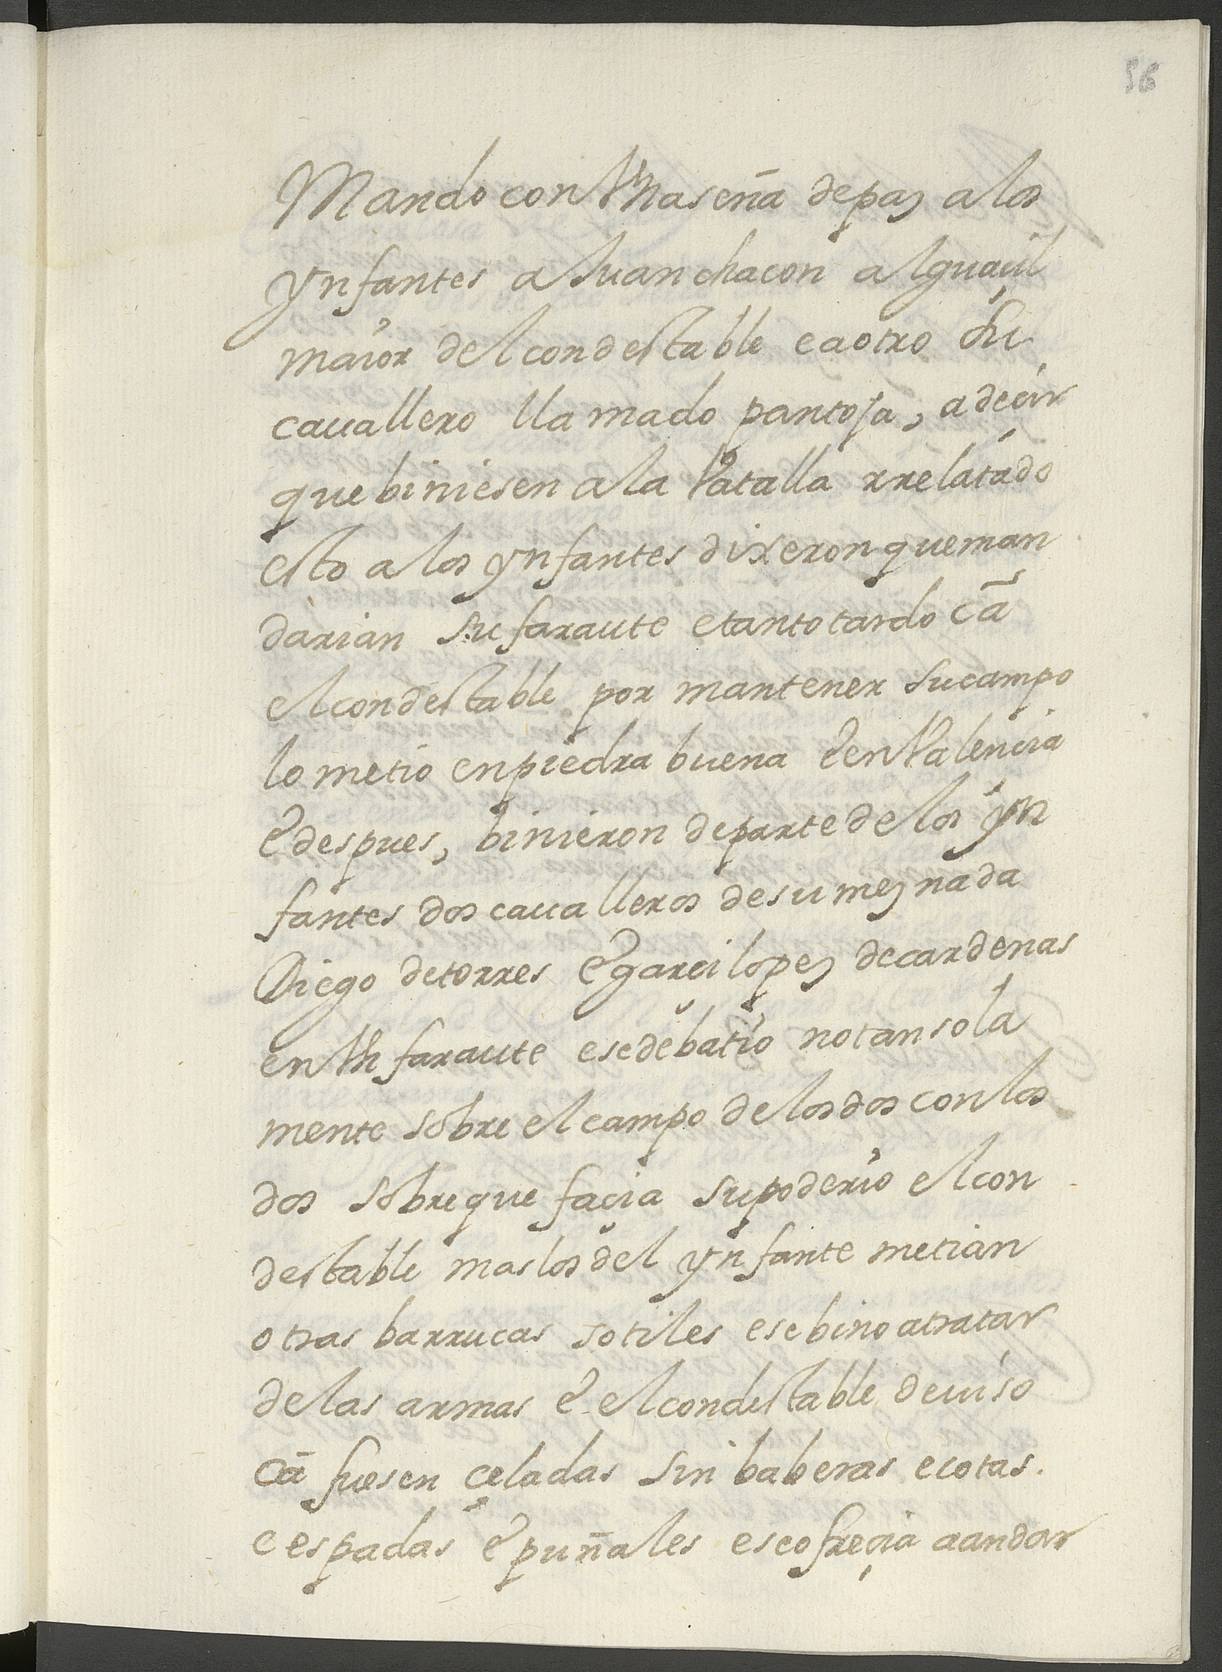 56
Mando con Vna señā de paz a los
ynfantes a Juan chacon alguaçil
maior del condestable e a otro su
cauallero llamado pantoja, a deçir
que biniesen a la Vatalla rrelatado
esto a los ynfantes dixeron que man
darian su faraute e tanto tardo cā
el condestable por mantener su campo
lo metio en piedra buena e en Valençia
e despues, binieron de parte de los yn
fantes dos caualleros de su meznada
Diego de torres e garçi lopez de cardenas
en Vn faraute e se debatio no tan sola
mente sobre el campo de los dos con los
dos sobre que façia su poderio el con
destable mas los del ynfante metian
otras barrucas sotiles e se bino a tratar
de las armas e el condestable deuiso
cā fuesen çeladas sin baberas e cotas.
e espadas e puñales e se ofreçia a andar